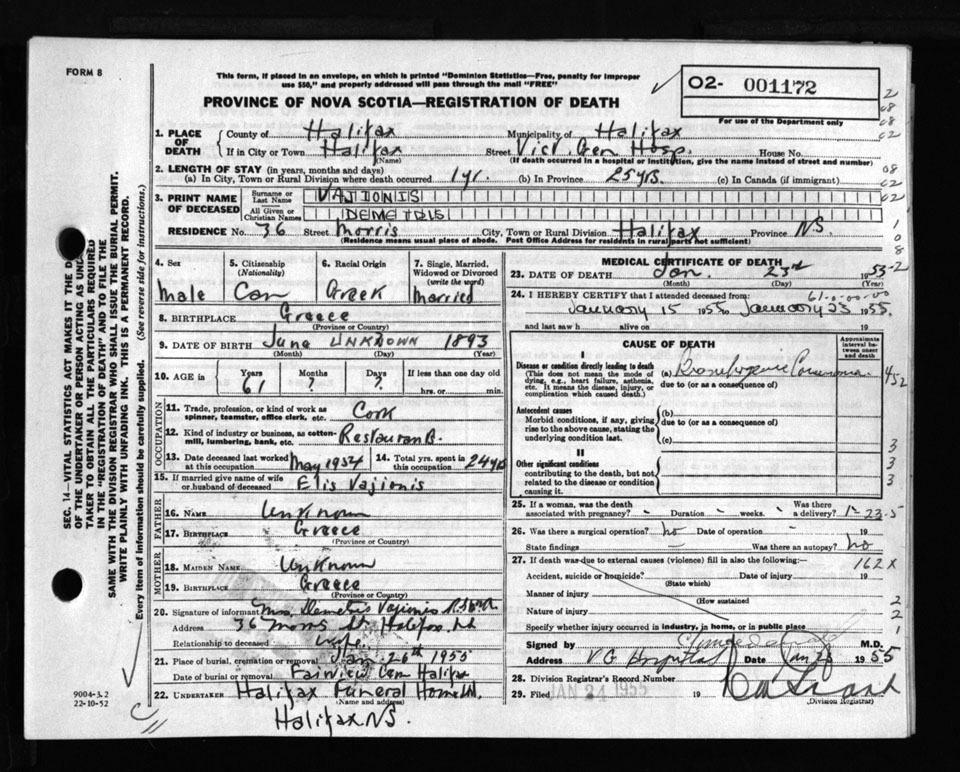 FORM 8
This form, if placed in an envelope, on which is printed "Dominion Statistics—Free, penalty for improper
use $50," and properly addressed will pass through the mail "FREE"
O2- 001172
For use of the Department only
PROVINCE OF NOVA SCOTIA—REGISTRATION OF DEATH
1. PLACE OF DEATH
County of Halifax Municipality of Halifax
If in City or Town Halifax Street Vict. Gen Hosp. House No.
(Name) (If death occurred in a hospital or institution, give the name instead of street and number)
2. LENGTH OF STAY (in years, months and days)
(a) In City, Town or Rural Division where death occurred 1 yr. (b) In Province 25 yrs. (c) In Canada (if immigrant)
3. PRINT NAME OF DECEASED
Surname or Last Name VAJIONIS
All Given or Christian Names DEMETRIS
RESIDENCE No. 36 Street Morris City, Town or Rural Division Halifax Province N.S.
(Residence means usual place of abode. Post Office Address for residents in rural parts not sufficient)
4. Sex Male
5. Citizenship (Nationality) Can
6. Racial Origin Greek
7. Single, Married, Widowed or Divorced (write the word) Married
8. BIRTHPLACE Greece
(Province or Country)
9. DATE OF BIRTH June UNKNOWN 1893
(Month) (Day) (Year)
10. AGE in Years 61 Months ? Days ? If less than one day old hrs. or min.
OCCUPATION
11. Trade, profession, or kind of work as spinner, teamster, office clerk, etc. Cook
12. Kind of industry or business, as cotton-mill, lumbering, bank, etc.
13. Date deceased last worked at this occupation May 1954
14. Total yrs. spent in this occupation 24 yrs
15. If married give name of wife or husband of deceased Elis Vajionis
FATHER
16. NAME Unknown
17. BIRTHPLACE Greece
(Province or Country)
MOTHER
18. MAIDEN NAME Unknown
19. BIRTHPLACE Greece
(Province or Country)
20. Signature of informant Mrs. Demetris Vajionis
Address 36 Morris St. Halifax
Relationship to deceased wife
21. Place of burial, cremation or removal Jan 26th 1955
Date of burial or removal Fairview Cem Halifax
22. UNDERTAKER Halifax Funeral Home
(Name and address)
Halifax N.S.
MEDICAL CERTIFICATE OF DEATH
23. DATE OF DEATH Jan. 23rd
(Month) (Day) (Year)
24. I HEREBY CERTIFY that I attended deceased from:
January 15 1955 to January 23 1955.
and last saw h alive on 19
CAUSE OF DEATH
Approximate interval between onset and death
I
Disease or condition directly leading to death
(This does not mean the mode of dying, e.g., heart failure, asthenia, etc. It means the disease, injury, or complication which caused death.)
(a) Bronchogenic Carcinoma
due to (or as a consequence of)
Antecedent causes
Morbid conditions, if any, giving rise to the above cause, stating the underlying condition last.
(b)
due to (or as a consequence of)
(c)
II
Other significant conditions
contributing to the death, but not related to the disease or condition causing it.
25. If a woman, was the death associated with pregnancy? Duration weeks. Was there a delivery?
26. Was there a surgical operation? no Date of operation 19
State findings Was there an autopsy? no
27. If death was due to external causes (violence) fill in also the following:— 162X
Accident, suicide or homicide? Date of injury 19
(State which)
Manner of injury
(How sustained)
Nature of injury
Specify whether injury occurred in industry, in home, or in public place
Signed by M.D.
Address V G Hospital Date Jan 23 1955
28. Division Registrar's Record Number
29. Filed JAN 24 1955 19
(Division Registrar)
SEC. 14—VITAL STATISTICS ACT MAKES IT THE
OF THE UNDERTAKER OR PERSON ACTING AS
TAKER TO OBTAIN ALL THE PARTICULARS REQUIRED
IN THE "REGISTRATION OF DEATH" AND TO FILE THE
SAME WITH THE DIVISION REGISTRAR WHO SHALL ISSUE THE BURIAL PERMIT.
WRITE PLAINLY WITH UNFADING INK. THIS IS A PERMANENT RECORD.
Every item of information should be carefully supplied. (See reverse side for instructions.)
9004-3.2
22-10-52